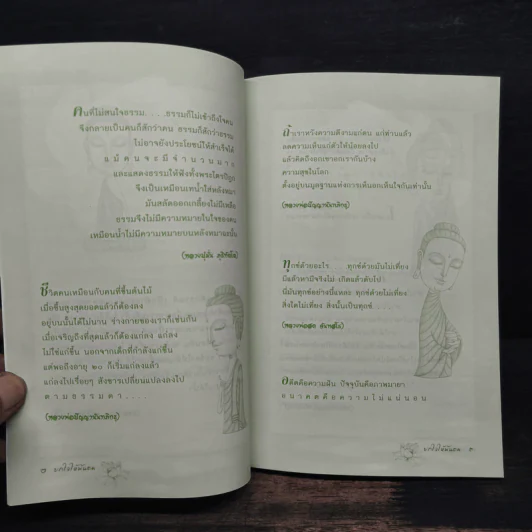 คนที่ไม่สนใจธรรม....ธรรมก็ไม่เข้าถึงใจคน
จึงกลายเป็นคนก็สักว่าคน ธรรมก็สักว่าธรรม
ไม่อาจยังประโยชน์ให้สำเร็จได้
แม้คนจะมีจำนวนมาก
และแสดงธรรมให้ฟังทั้งพระไตรปิฎก
จึงเป็นเหมือนเทน้ำใส่หลังหมา
มันสลัดออกเกลี้ยงไม่มีเหลือ
ธรรมจึงไม่มีความหมายในใจของคน
เหมือนน้ำไม่มีความหมายบนหลังหมาฉะนั้น
(หลวงปู่มั่น ภูริทัตโต)
ชีวิตคนเหมือนกับคนที่ขึ้นต้นไม้
เมื่อขึ้นสูงสุดยอดแล้วก็ต้องลง
อยู่บนนั้นได้ไม่นาน ร่างกายของเราก็เช่นกัน
เมื่อเจริญถึงที่สุดแล้วก็ต้องแก่ลง แก่ลง
ไม่ใช่แก่ขึ้น นอกจากเด็กที่กำลังแก่ขึ้น
แต่พอถึงอายุ ๒๐ ก็เริ่มแก่ลงแล้ว
แก่ลงไปเรื่อยๆ สังขารเปลี่ยนแปลงลงไป
ตามธรรมดา....
(หลวงพ่อปัญญานันทภิกขุ)
ถ้าเราหวังความดีงามแก่ตน แก่ท่านแล้ว
ลดความเห็นแก่ตัวให้น้อยลงไป
แล้วคิดถึงอกเขาอกเรากันบ้าง
ความสุขในโลก
ตั้งอยู่บนมูลฐานแห่งการเห็นอกเห็นใจกันเท่านั้น
(หลวงพ่อปัญญานันทภิกขุ)
ทุกข์คืออะไร ทุกข์ด้วยมันไม่เที่ยง
มีแล้วหามีจริงไม่ เกิดแล้วดับไป
นี่มันทุกข์อย่างนี้แหละ ทุกข์ด้วยไม่เที่ยง
สิ่งใดไม่เที่ยง สิ่งนั้นเป็นทุกข์
(หลวงพ่อสด จันทสโร)
อดีตคือความฝัน ปัจจุบันคือภาพมายา
อนาคตคือความไม่แน่นอน